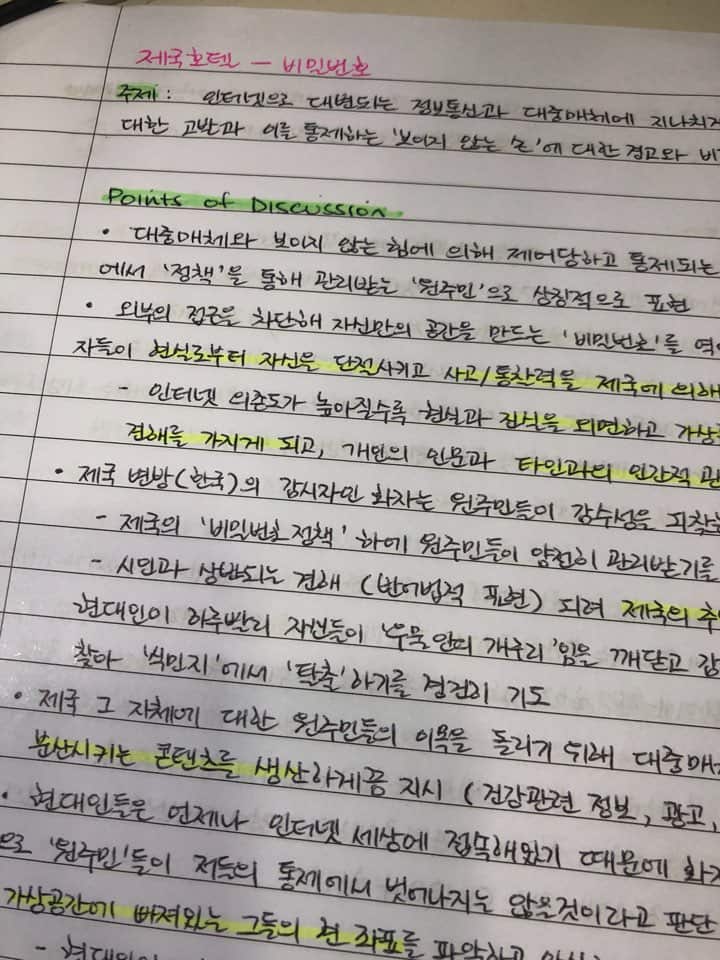 제국호텔 - 비밀번호
주제 : 인터넷으로 대변되는 정보통신과 대중매체에 지나치게
대한 고발과 이를 통제하는 '보이지 않는 손'에 대한 경고와 비
Points of Discussion
• 대중매체와 보이지 않는 힘에 의해 제어당하고 통제되는
에서 '정책'을 통해 관리받는 '원주민'으로 상징적으로 표현
• 외부의 접근을 차단해 자신만의 공간을 만드는 '비밀번호'를 역
자들이 현실로부터 자신을 단절시키고 사고/통찰력을 제국에 의해
- 인터넷 의존도가 높아질수록 현실과 진실을 외면하고 가상
견해를 가지게 되고, 개인의 인문과 타인과의 인간적 관
• 제국 변방(한국)의 감시자인 화자는 원주민들이 감수성을 피착
- 제국의 '비밀번호 정책' 하에 원주민들이 얌전히 관리받기를
- 시인과 상반되는 견해 (반어법적 표현) 되려 제국의 추
현대인이 하루빨리 자신들이 '우물 안의 개구리'임을 깨닫고 감
찾아 '식민지'에서 '탈출'하기를 간절히 기도
• 제국 그 자체에 대한 원주민들의 이목을 돌리기 위해 대중매
분산시키는 콘텐츠를 생산하게끔 지시 (건강관련 정보, 광고,
• 현대인들은 언제나 인터넷 세상에 접속해있기 때문에 화
으로 '원주민'들이 저들의 통제에서 벗어나지는 않을것이라고 판단
가상공간에 빠져있는 그들의 현 좌표를 파악하고
- 현대인